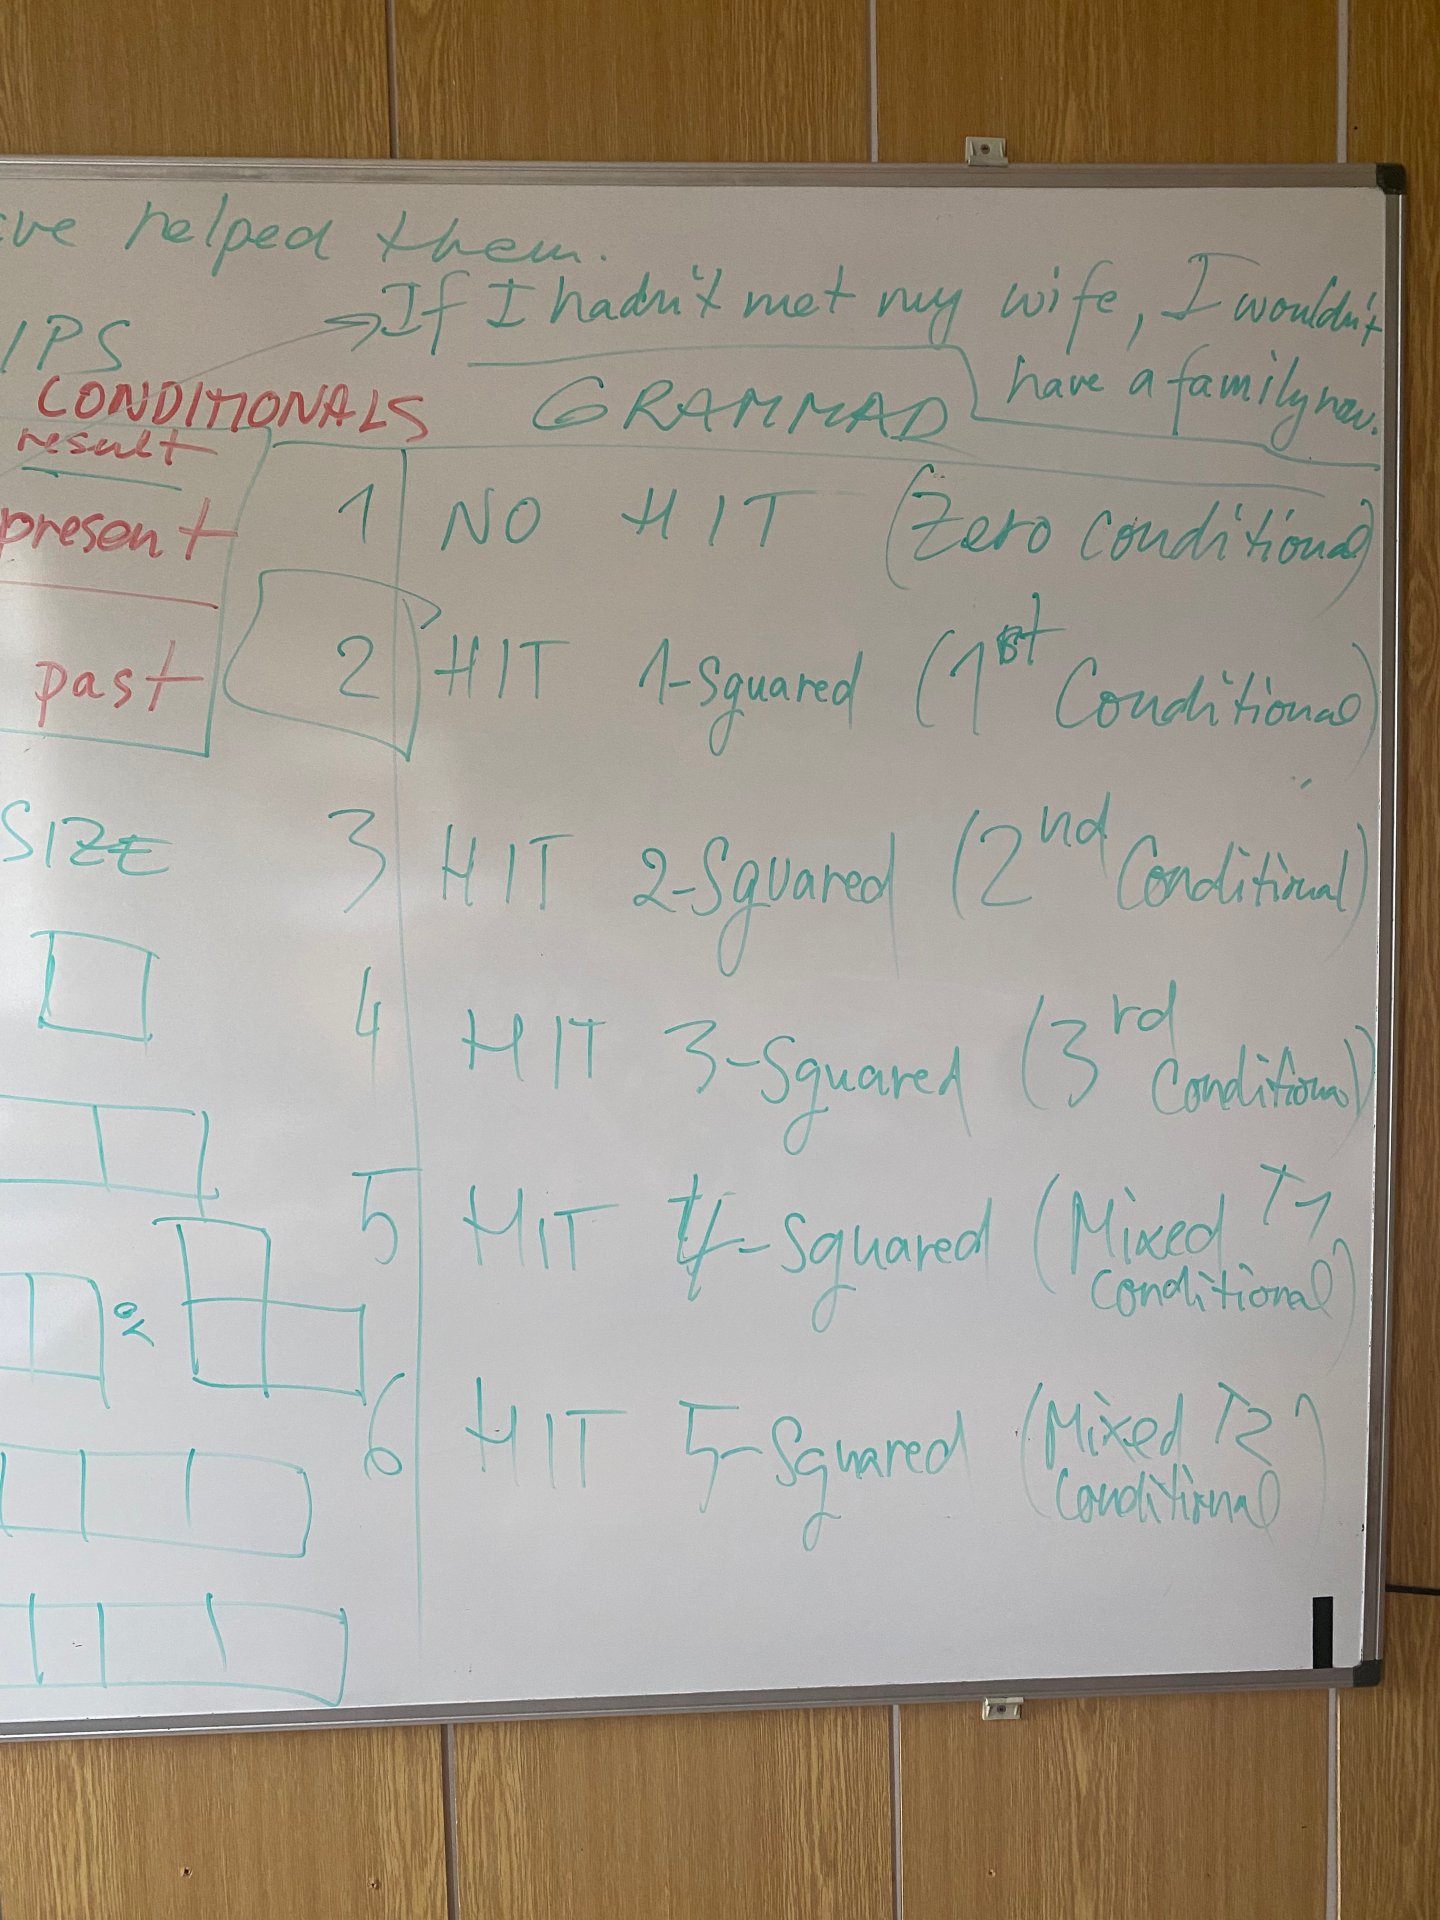 ve helped them.
If I hadn't met my wife, I wouldn't
have a family now.
IPS
CONDITIONALS
result
present
past
SIZE
or
GRAMMAD
1 NO HIT (Zero Conditional)
2 HIT 1-Squared (1st Conditional)
3 HIT 2-Squared (2nd Conditional)
4 HIT 3-Squared (3rd Conditional)
5 HIT 4-Squared (Mixed T1
Conditional)
6 HIT 5-Squared (Mixed T2
Conditional)